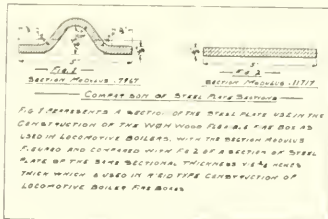 3"
3"
FIG 1
FIG 2
SECTION MODULUS .7967
SECTION MODULUS .11719
COMPARISON OF STEEL PLATE SECTIONS
FIG 1. REPRESENTS A SECTION OF THE STEEL PLATE USE IN THE
CONSTRUCTION OF THE WOOD FLEXIBLE FIRE BOX AS
USED IN LOCOMOTIVE BOILERS, WITH THE SECTION MODULUS
FIGURED AND COMPARED WITH FIG 2 OF A SECTION OF STEEL
PLATE OF THE SAME SECTIONAL THICKNESS
THICK WHICH IS USED IN RIGID TYPE CONSTRUCTION OF
LOCOMOTIVE BOILER FIRE BOXES